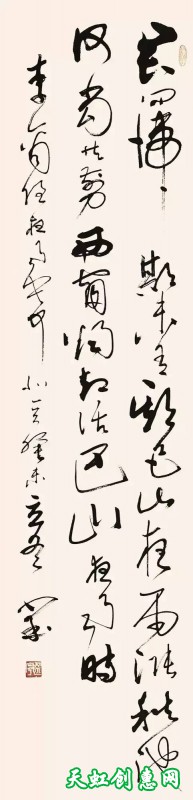 君問歸期未有期巴山夜雨漲秋池
何當共剪西窗燭却話巴山夜雨時
李商隱夜雨寄北 癸未立冬
天虹创意网